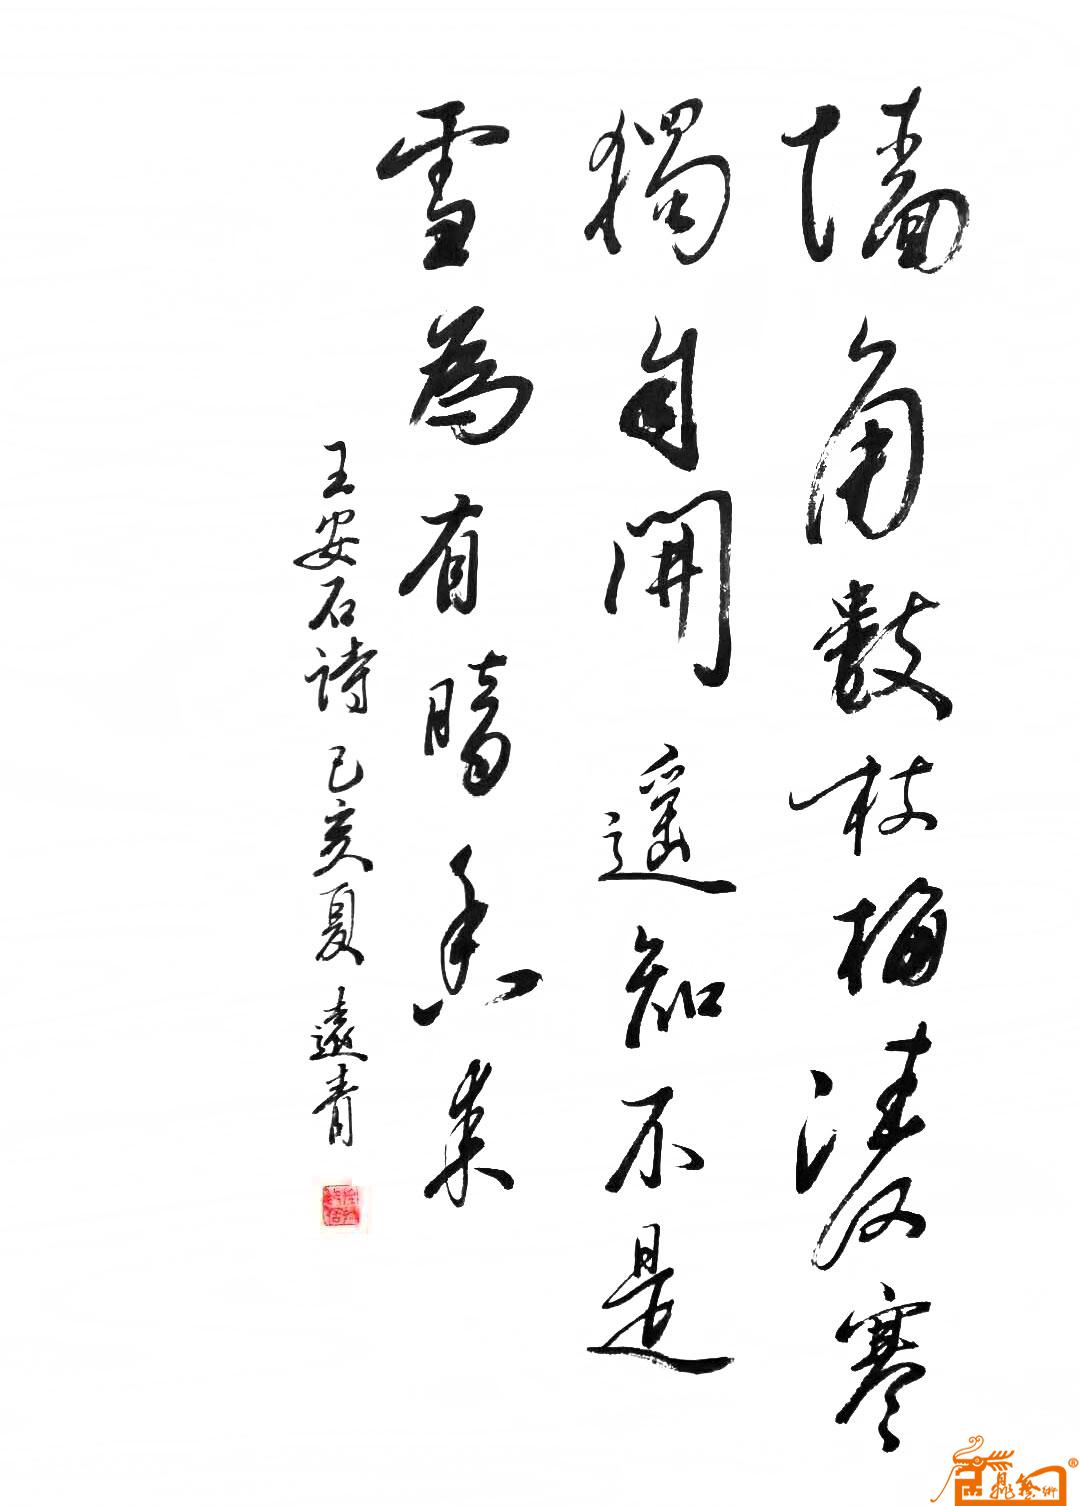 墙角数枝梅凌寒
獨自開遥知不是
雪為有暗香来
王安石诗己亥夏遠青